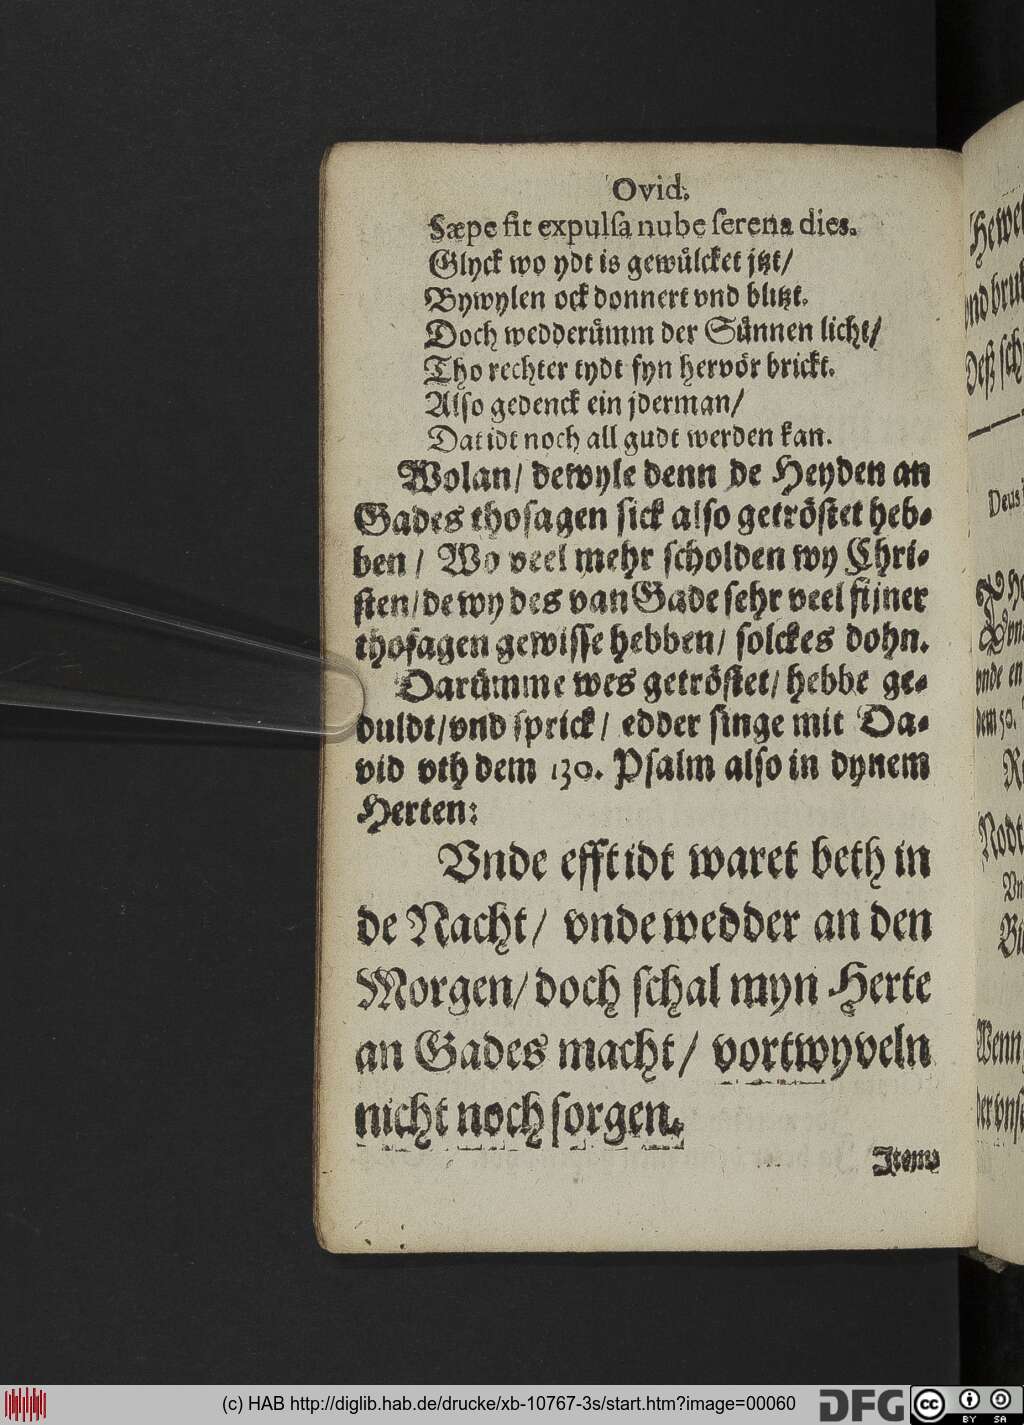 Ovid.
Sæpe fit expulſa nube ſerena dies.
Glyck wo ydt is gewuͤlcket jtzt/
Bywylen ock donnert vnd blitzt.
Doch wedderuͤmm der Suͤnnen licht/
Tho rechter tydt ſyn hervoͤr brickt.
Alſo gedenck ein jderman/
Dat idt noch all gudt werden kan.
Wolan/ dewyle denn de Heyden an
Gades thoſagen ſick alſo getroͤſtet heb-
ben/ Wo veel mehr ſcholden wy Chri-
ſten/ de wy des van Gade ſehr veel fijner
thoſagen gewiſſe hebben/ ſolckes dohn.
Daruͤmme wes getroͤſtet/ hebbe ge-
duldt/ vnd ſprick/ edder ſinge mit Da-
vid vth dem 130. Pſalm alſo in dynem
Herten:
Vnde efft idt waret beth in
de Nacht/ vnde wedder an den
Morgen/ doch ſchal myn Herte
an Gades macht/ vortwyveln
nicht noch ſorgen.
Item
Hewe
vnd bru
Deß ſch
Deus
vnde en
dem 50.
Nodt
Vn
Wenn
der vnſ
(c) HAB http://diglib.hab.de/drucke/xb-10767-3s/start.htm?image=00060
DFG
cc
BY SA